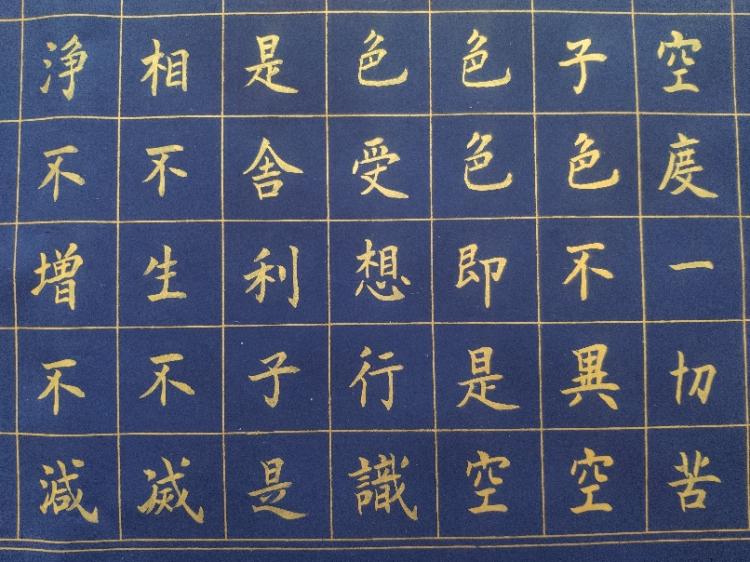 空度一切苦
子色不異空
色色即是空
色受想行識
是舎利子是
相不生不滅
浄不増不減